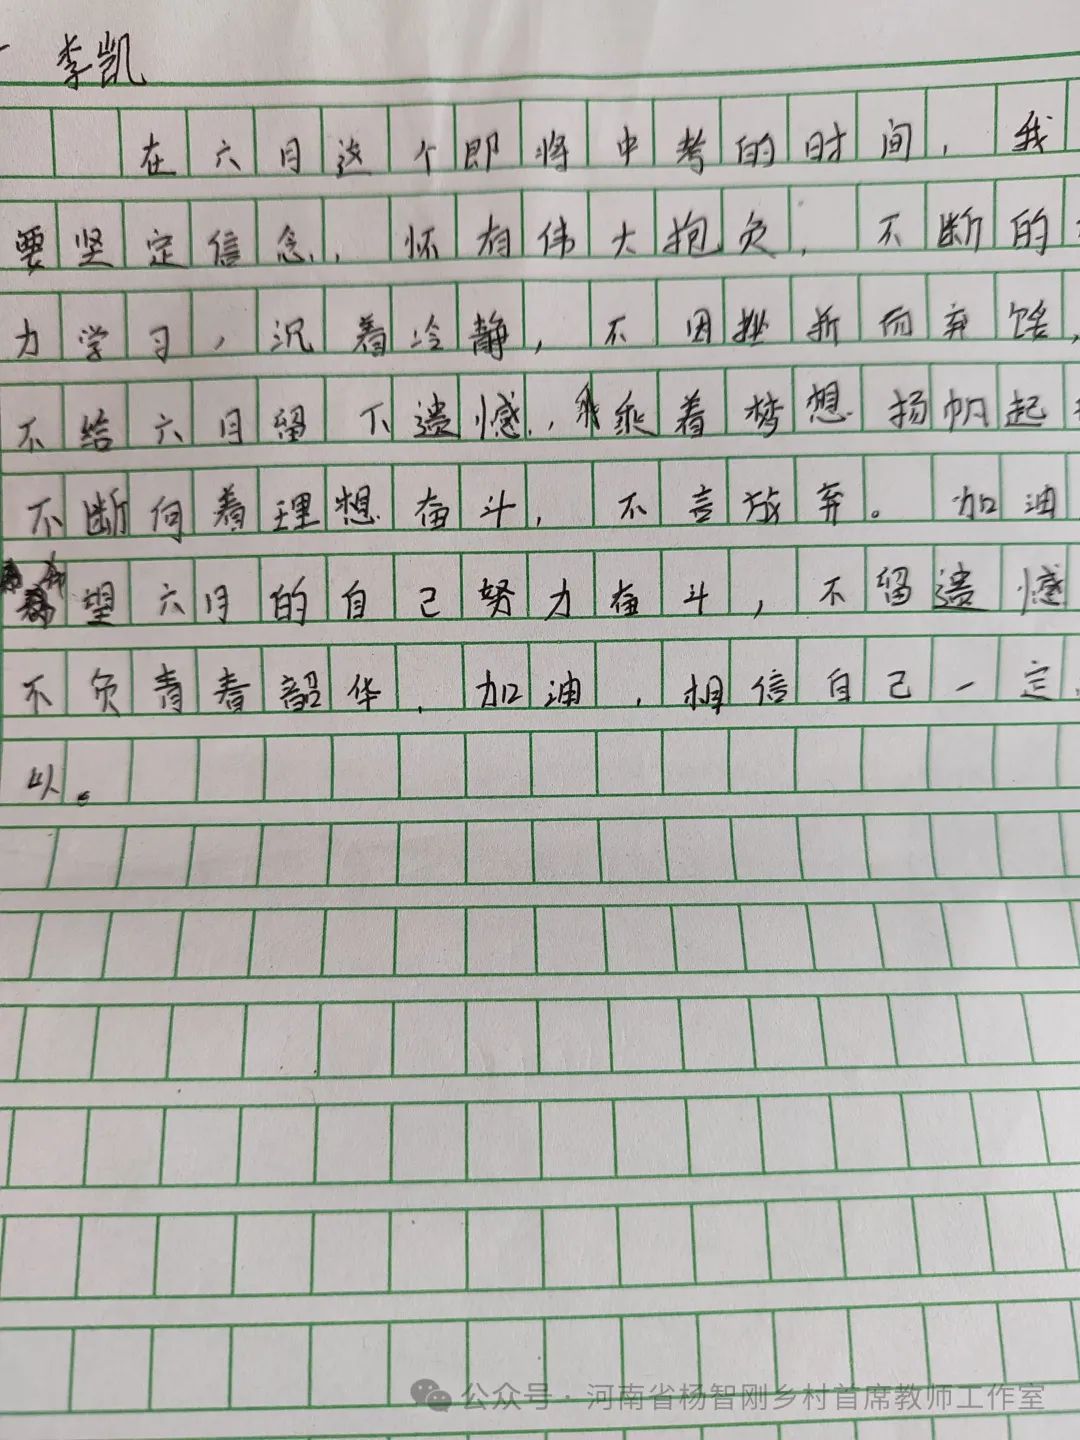 李凯
在六月这个即将中考的时间，我
要坚定信念，怀有伟大抱负，不断的
力学习，沉着冷静，不因挫折而弃馁，
不给六月留下遗憾，乘着梦想扬帆起
不断向着理想奋斗，不言放弃。加油
望六月的自己努力奋斗，不留遗憾
不负青春韶华，加油，相信自己一定
以。
公众号·河南省杨智刚乡村首席教师工作室